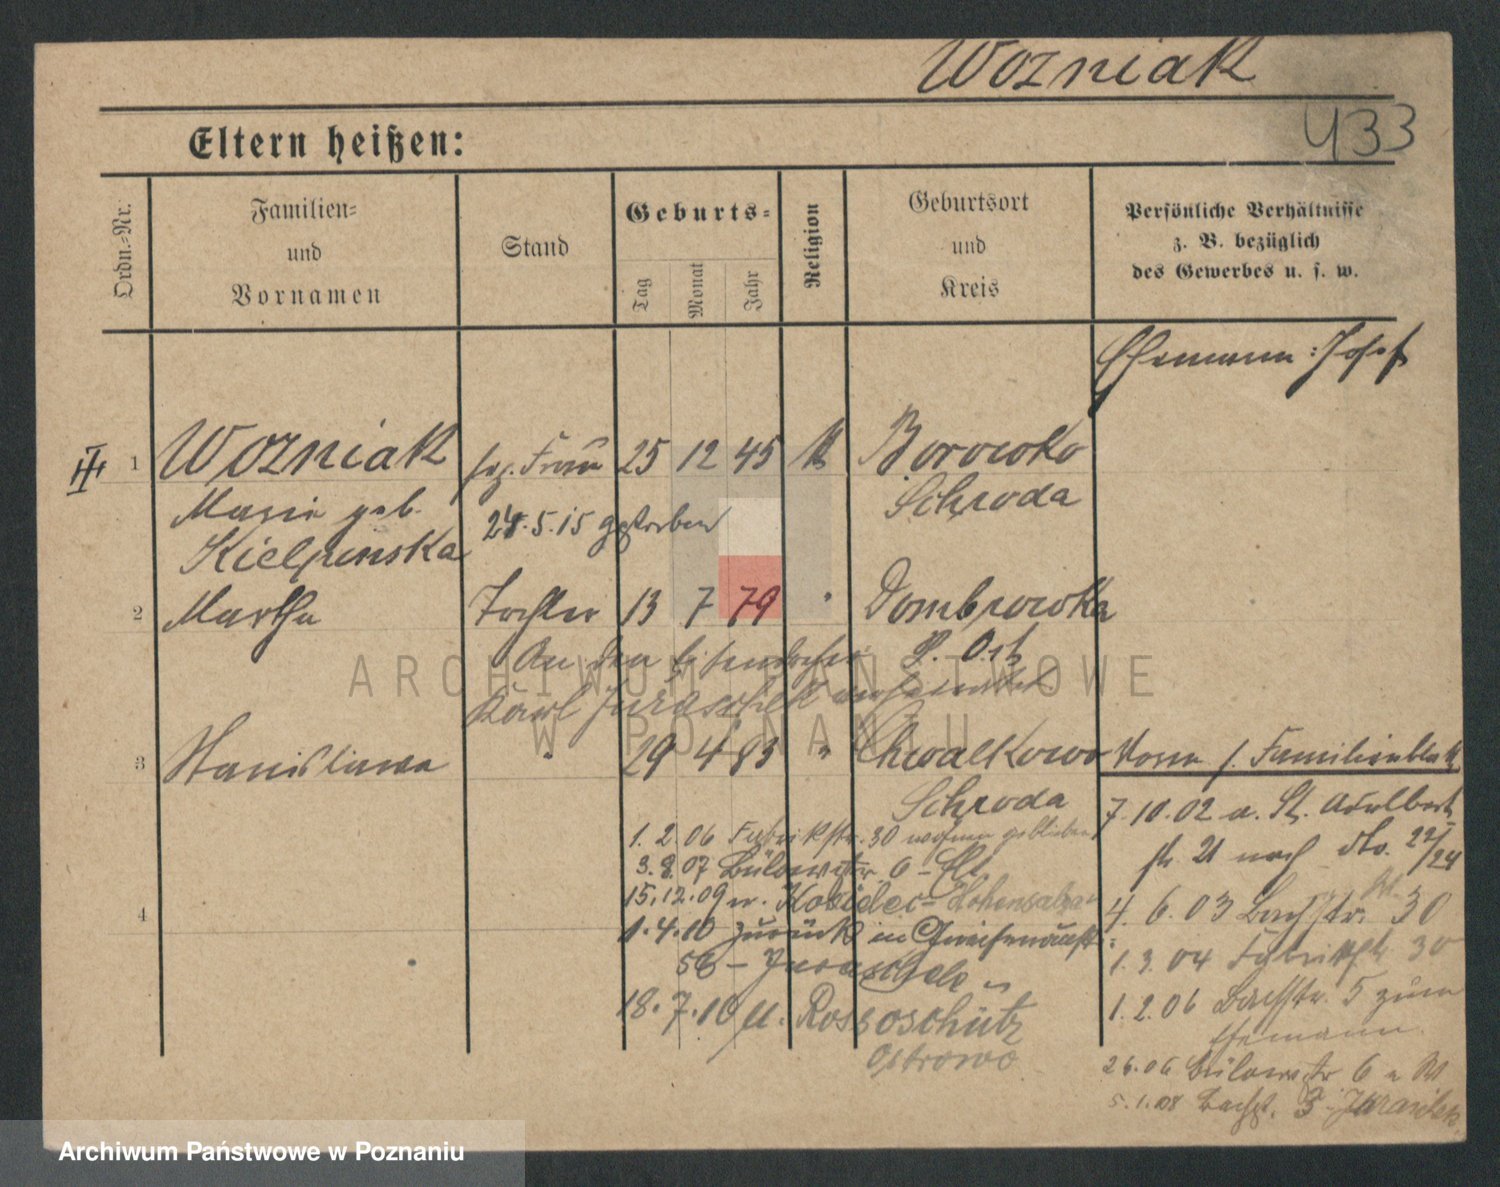 Wozniak
433
Eltern heißen:
Ordn.-Nr.
Familien-
und
Vornamen
Stand
Geburts-
Tag
Monat
Jahr
Religion
Geburtsort
und
Kreis
Persönliche Verhältnisse
z. B. bezüglich
des Gewerbes u. s. w.
Ehemann: Josef
III
1 Wozniak Frau 25 12 45 K Borowko
Marie geb. 24.5.15 gestorben Schroda
Kielpinska
2 Martha Tochter 13 7 79 " Dombrowka
An den
Karl Juraschek verheiratet
3 Stanislawa " 29 4 83 " Chwalkowo
Schroda
1.2.06 Fabrikstr. 30 wohnen geblieben
3.8.07 Bülowstr. 6
4 15.12.09 n. Hohensalza
1.4.10 zurück in
58 - Juraschek
18.7.10 n. Rossoschütz
Ostrowo
s. Familienblatt
7.10.02 a. St. Adalbert
str 21 nach 22/24
4.6.03 Bachstr. 30
1.3.04 Fabrikstr. 30
1.2.06 Bachstr. 5 zum
Ehemann.
Bülowstr 6
5.1.08 3 Juraschek
ARCHIWUM PAŃSTWOWE
W POZNANIU
Archiwum Państwowe w Poznaniu